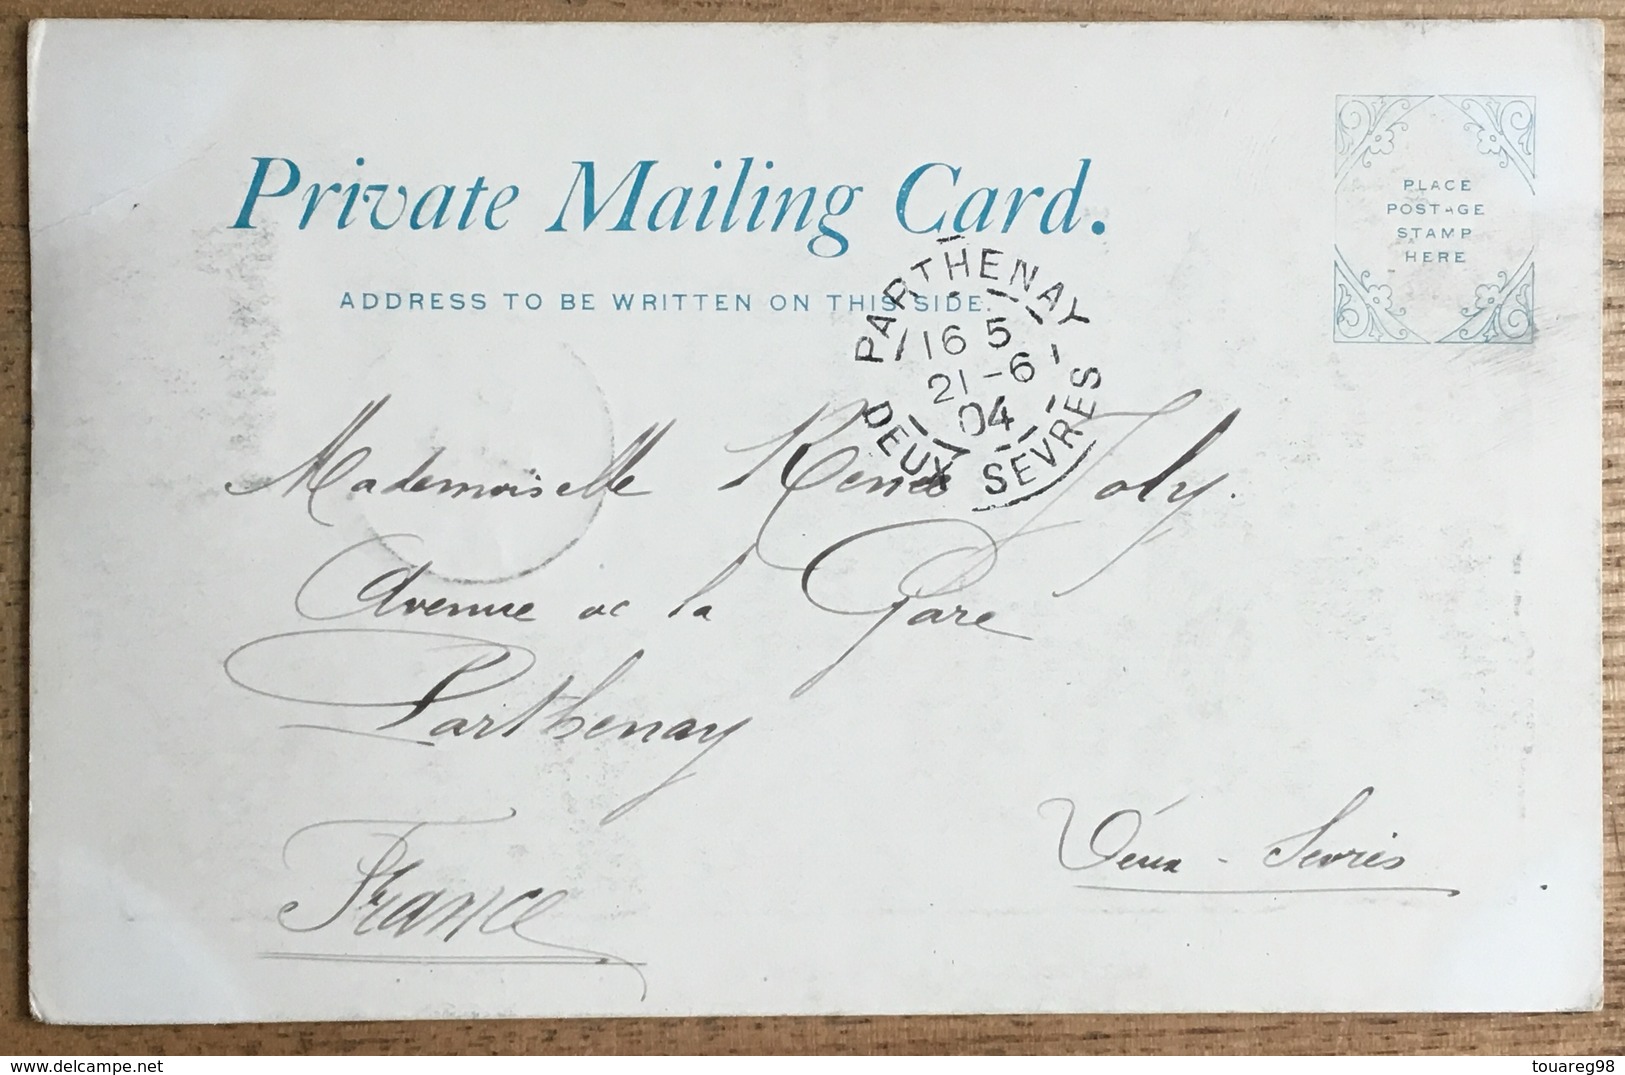 Private Mailing Card.
ADDRESS TO BE WRITTEN ON THIS SIDE.
PLACE
POSTAGE
STAMP
HERE
PARTHENAY
16 5
21-6
04
DEUX SÈVRES
Mademoiselle Renée Joly.
Avenue de la Gare
Parthenay
Deux-Sevres
France
www.delcampe.net
touareg98